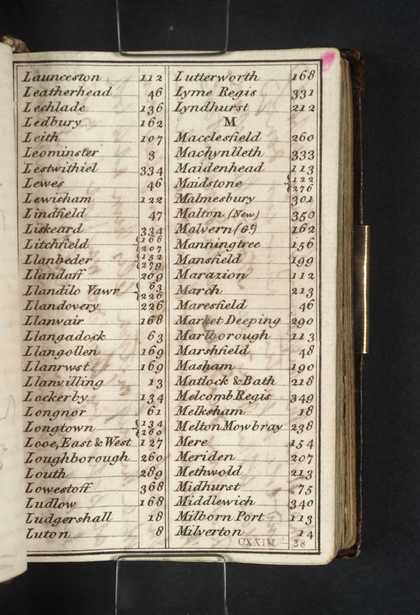 Launceston 112
Leatherhead 46
Lechlade 136
Ledbury 162
Leith 107
Leominster 3
Lestwithiel 334
Lewes 46
Lewisham 122
Lindfield 47
Liskeard 334
Litchfield { 166
207
Llanbeder { 152
279
Llandaff 209
Llandilo Vawr { 63
226
Llandovery 226
Llanvair 168
Llangadock 63
Llangollen 169
Llanrwst 169
Llanvilling 13
Lockerby 134
Longnor 61
Longtown { 134
260
Looe, East & West 127
Loughborough 260
Louth 289
Lowestoff 368
Ludlow 168
Ludgershall 18
Luton 8
Lutterworth 168
Lyme Regis 331
Lyndhurst 212
M
Macclesfield 260
Machynlleth 333
Maidenhead 113
Maidstone { 122
276
Malmesbury 301
Malton (New) 350
Malvern (Gt) 162
Manningtree 156
Mansfield 199
Marazion 112
March 213
Maresfield 46
Market Deeping 290
Marlborough 113
Marshfield 48
Masham 190
Matlock & Bath 218
Melcomb Regis 349
Melksham 18
Melton Mowbray 238
Mere 154
Meriden 207
Methwold 213
Midhurst 75
Middlewich 340
Milborn Port 113
Milverton 14
38